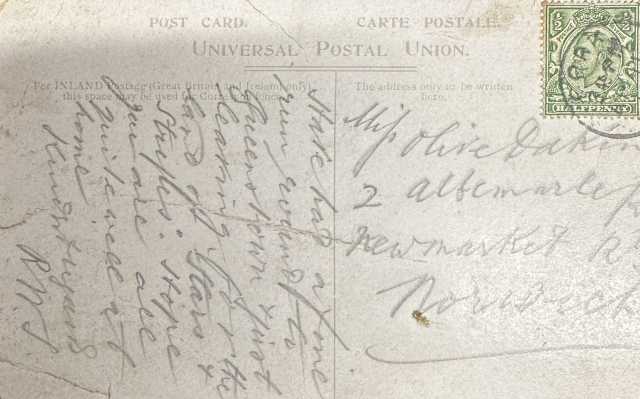 POST CARD. CARTE POSTALE
UNIVERSAL POSTAL UNION.
For INLAND Postage (Great Britain and Ireland only)
this space may be used for Correspondence.
The address only to be written
here.
HALFPENNY
Have had a fine
run round to
Queenstown & just
leaving for the
land of Stars &
Stripes. Hope
you are all
quite well at
home
Kind regards
Miss Olive Dakin
2 Albemarle
Newmarket R
Norwich